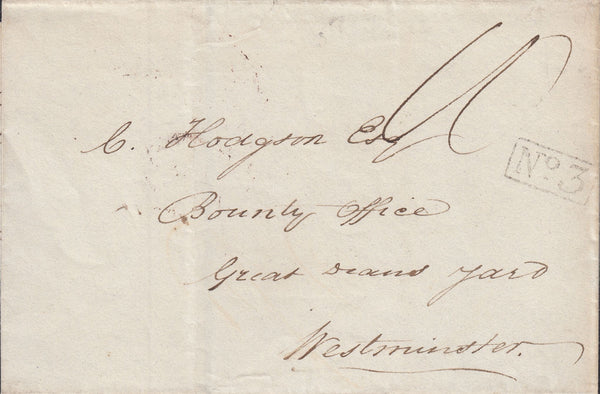 C. Hodgson Esq
No. 3
Bounty Office
Great Deans Yard
Westminster.